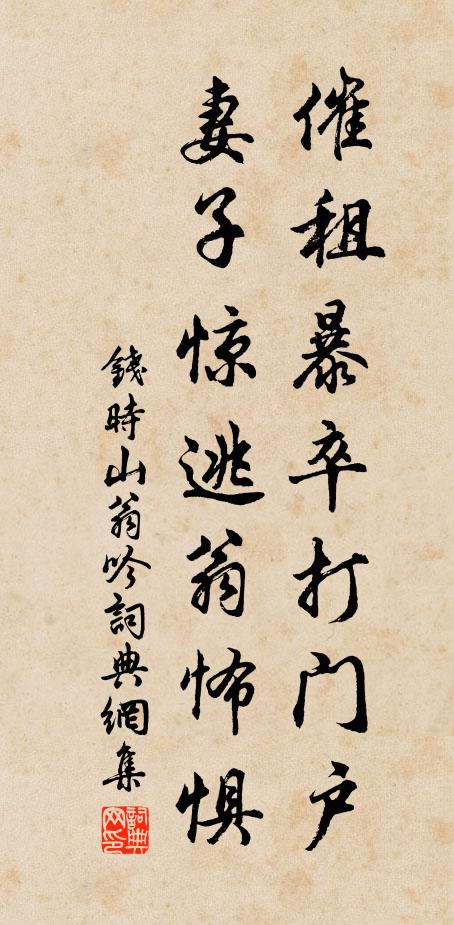 催租暴卒打门户
妻子惊逃翁怖惧
錢時山翁吟詞典網集
詞典
网印